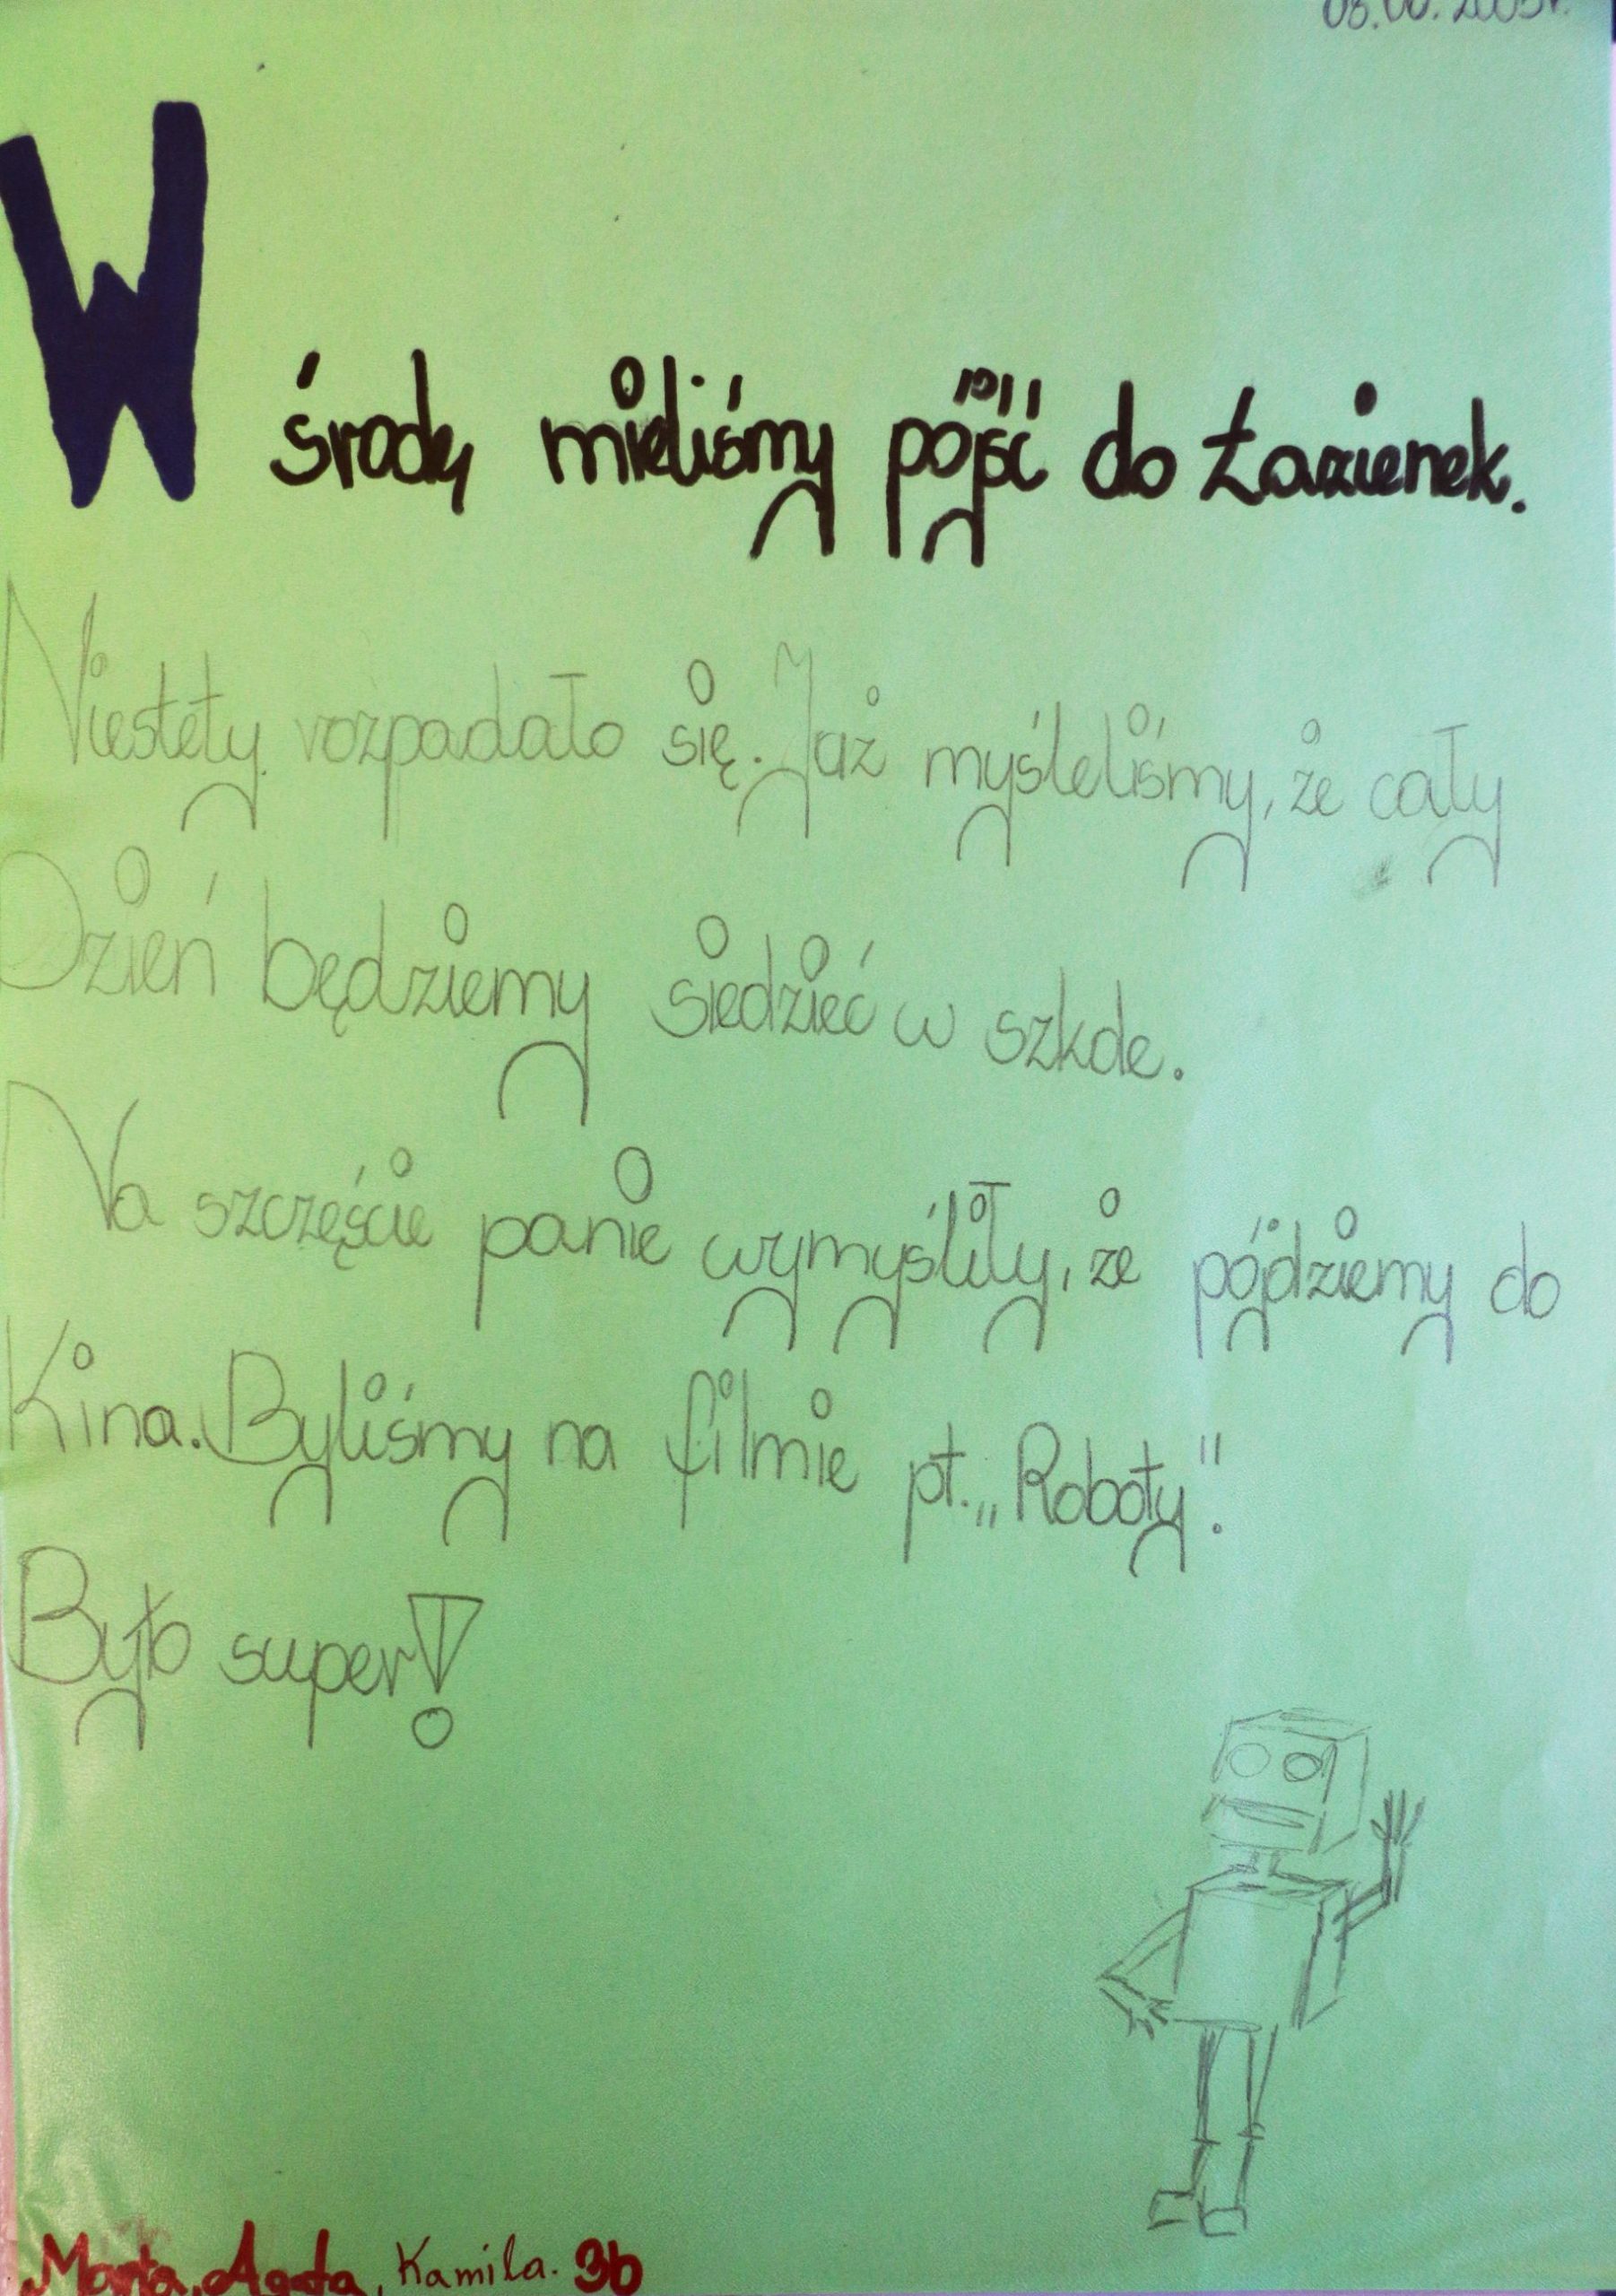 W środę mieliśmy pójść do Łazienek.
Niestety rozpadało się. Już myśleliśmy, że cały
Dzień będziemy siedzieć w szkole.
Na szczęście panie wymyśliły, że pójdziemy do
Kina. Byliśmy na filmie pt. „Roboty".
Było super!
Marta, Agata, Kamila. 3b